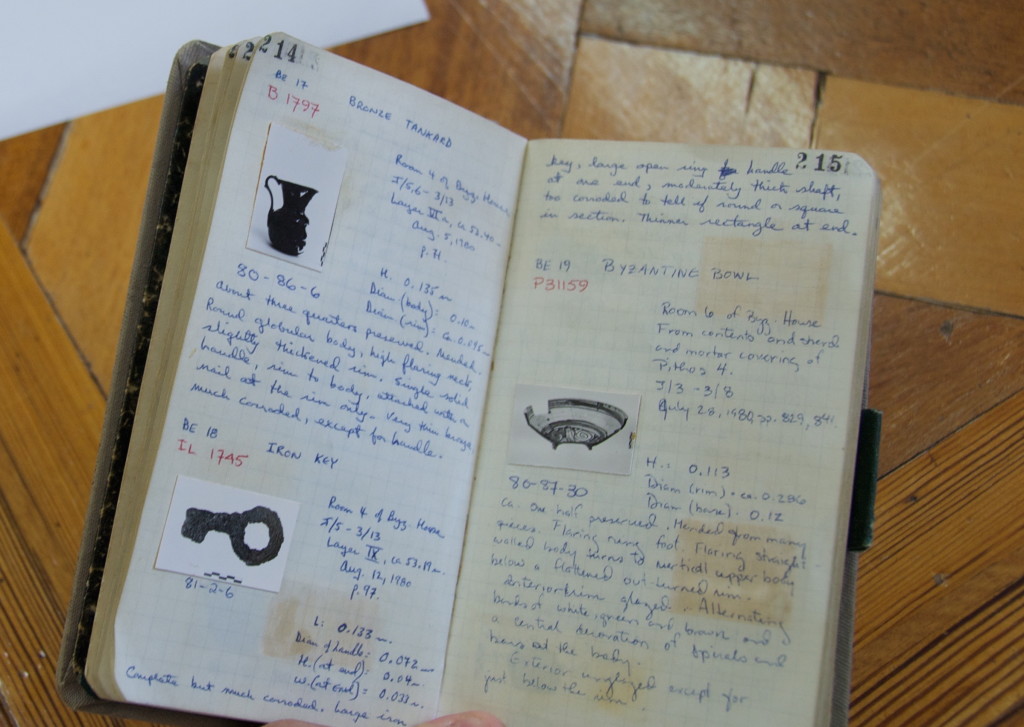 214
BE 17
B 1797
BRONZE TANKARD
Room 4 of Byz. House
J/5,6 - 3/13
Layer, ca 53.40 m.
Aug. 5, 1980
p. 71.
H. 0.135 m
Diam (body): 0.10 m
Diam (rim): ca. 0.095 m
80-86-6
about three quarters preserved. Mended.
Round globular body, high flaring neck,
slightly thickened rim. Single solid
handle, rim to body, attached with a
nail at the rim only. Very thin bronze
much corroded, except for handle.
BE 18
IL 1745
IRON KEY
Room 4 of Byz. House
J/5 - 3/13
Layer IX, ca 53.19 m.
Aug. 12, 1980
p. 97.
81-2-6
L: 0.133 m.
Diam of handle: 0.072 m
H. (at end): 0.04 m.
W. (at end): 0.033 m.
Complete but much corroded. Large iron
215
key, large open ring handle
at one end, moderately thick shaft,
too corroded to tell if round or square
in section. Thinner rectangle at end.
BE 19
P31159
BYZANTINE BOWL
Room 6 of Byz. House
From contents and sherd
and mortar covering of
Pithos 4.
J/3 - 3/8
July 28, 1980, pp. 829, 841.
H.: 0.113
Diam (rim): ca. 0.286
Diam (base): 0.12
86-87-30
ca. one half preserved. Mended from many
pieces. Flaring ring foot. Flaring straight
walled body turns to vertical upper body
below a flattened out-turned rim.
Interior + rim glazed. Alternating
bands of white, green and brown and
a central decoration of spirals and
bars on the body.
Exterior unglazed except for
just below the rim.